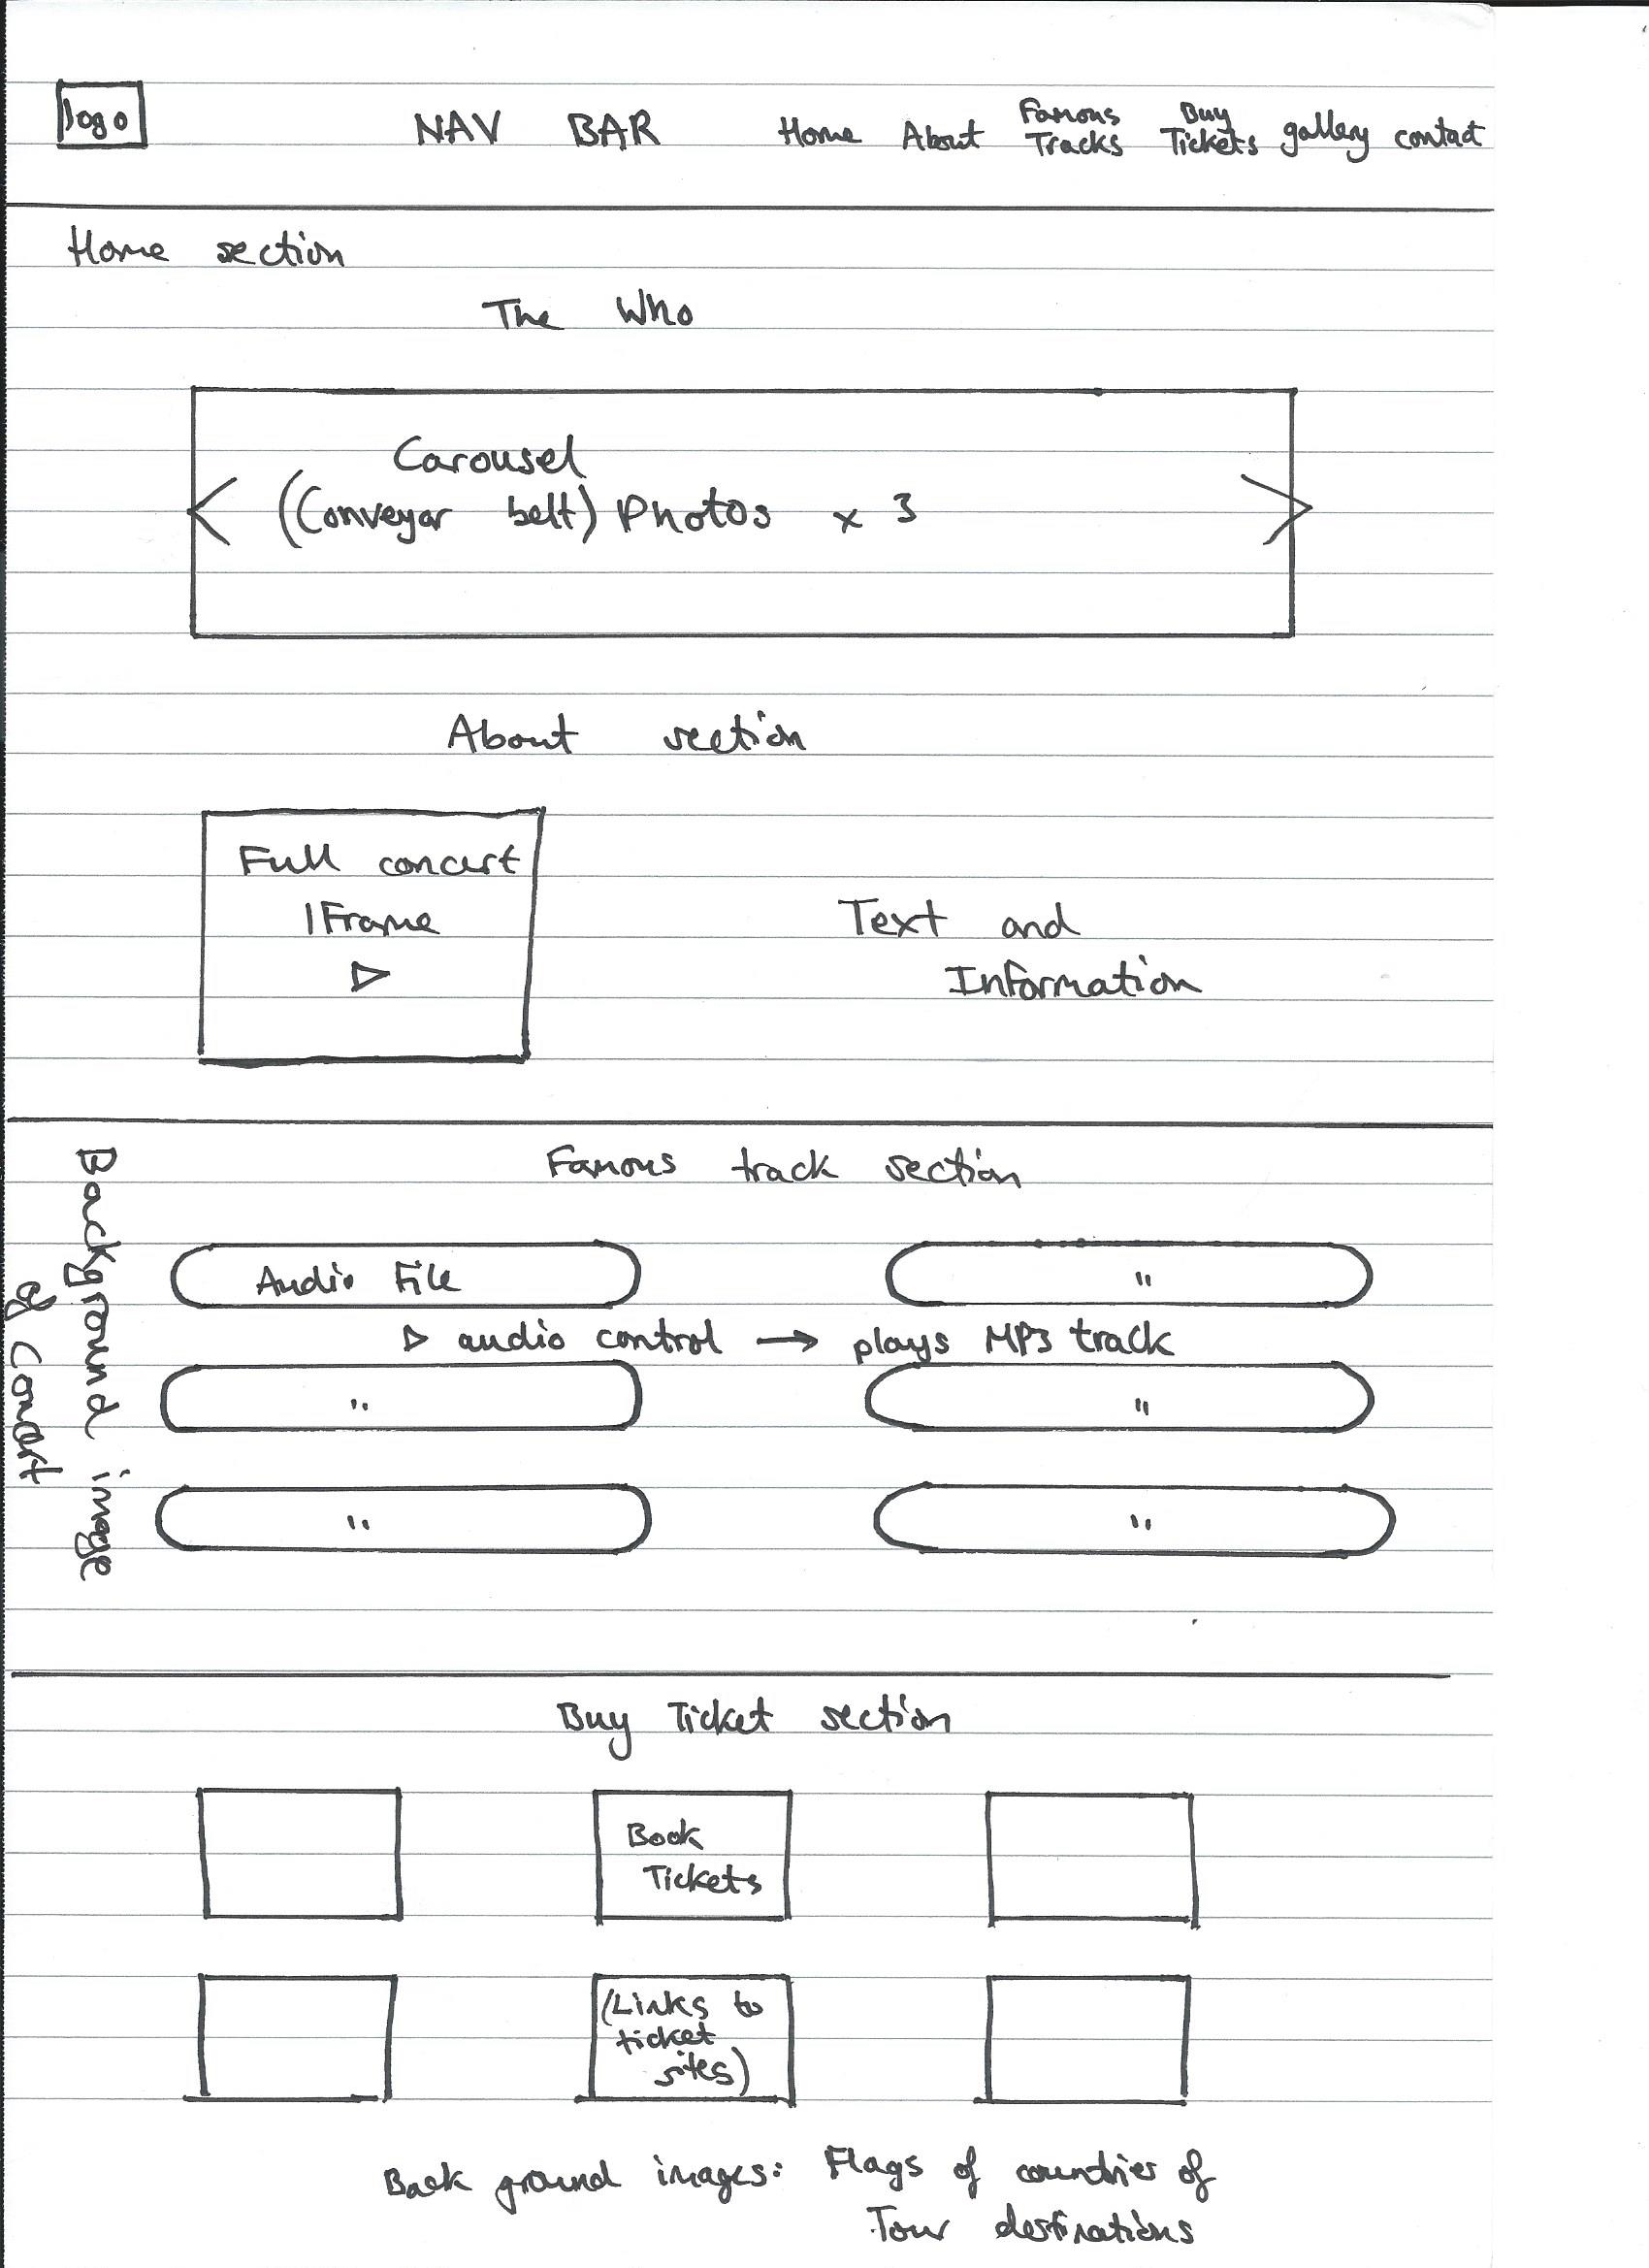 logo
NAV BAR
Home About Famous Tracks Buy Tickets gallery contact
Home section
The Who
Carousel
< (Conveyar belt) Photos x 3 >
About section
Full concert
IFrame
Text and
Information
Famous track section
Background image
of Concert
Audio File
"
audio control → plays MP3 track
" "
" "
Buy Ticket section
Book
Tickets
(Links to
ticket
sites)
Back ground images: Flags of countries of
Tour destinations